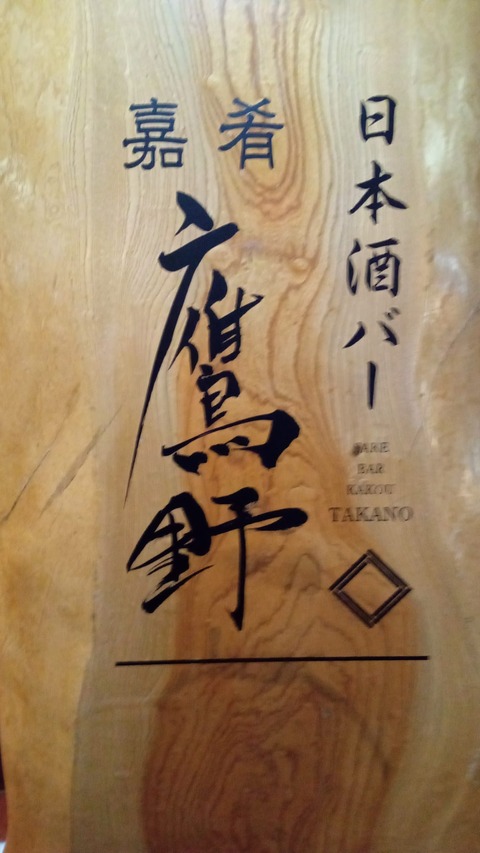 日本酒バー
嘉肴
鷹野
SAKE
BAR
KAKOU
TAKANO